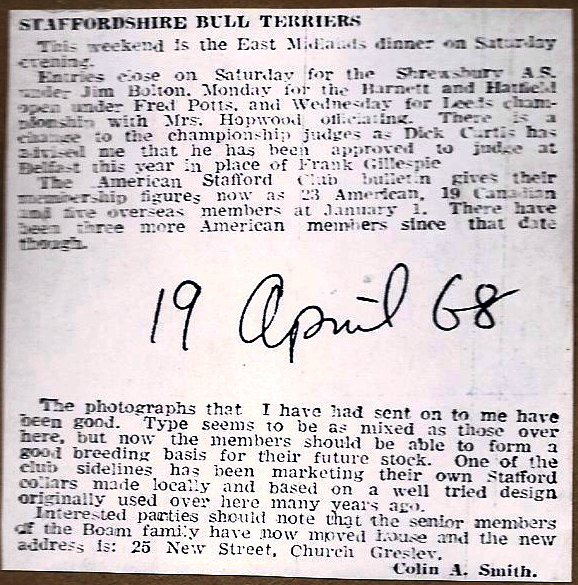 STAFFORDSHIRE BULL TERRIERS
This weekend is the East Midlands dinner on Saturday
evening.
Entries close on Saturday for the Shrewsbury A.S.
under Jim Bolton, Monday for the Barnett and Hatfield
open under Fred Potts, and Wednesday for Leeds cham-
pionship with Mrs. Hopwood officiating. There is a
change to the championship judges as Dick Curtis has
advised me that he has been approved to judge at
Belfast this year in place of Frank Gillespie
The American Stafford Club bulletin gives their
membership figures now as 23 American, 19 Canadian
and five overseas members at January 1. There have
been three more American members since that date
though.
19 April 68
The photographs that I have had sent on to me have
been good. Type seems to be as mixed as those over
here, but now the members should be able to form a
good breeding basis for their future stock. One of the
club sidelines has been marketing their own Stafford
collars made locally and based on a well tried design
originally used over here many years ago.
Interested parties should note that the senior members
of the Boam family have now moved house and the new
address is: 25 New Street, Church Gresley.
Colin A. Smith.